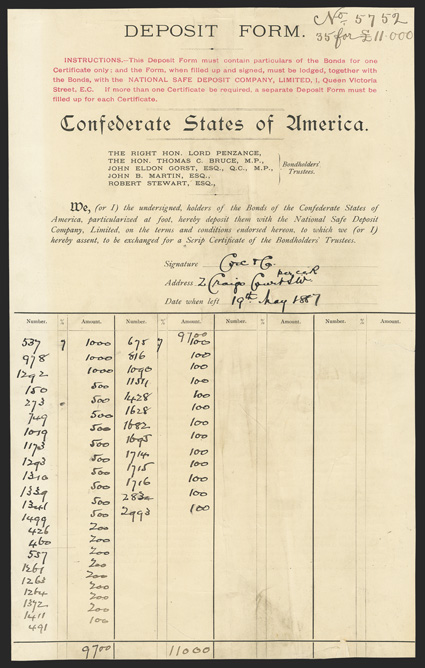 DEPOSIT FORM.
No 5752
35 for £11000
INSTRUCTIONS.—This Deposit Form must contain particulars of the Bonds for one
Certificate only; and the Form, when filled up and signed, must be lodged, together with
the Bonds, with the NATIONAL SAFE DEPOSIT COMPANY, LIMITED, 1, Queen Victoria
Street, E.C. If more than one Certificate be required, a separate Deposit Form must be
filled up for each Certificate.
Confederate States of America.
THE RIGHT HON. LORD PENZANCE,
THE HON. THOMAS C. BRUCE, M.P.,
JOHN ELDON GORST, ESQ., Q.C., M.P.,
JOHN B. MARTIN, ESQ.,
ROBERT STEWART, ESQ.,
Bondholders'
Trustees.
We, (or I) the undersigned, holders of the Bonds of the Confederate States of
America, particularized at foot, hereby deposit them with the National Safe Deposit
Company, Limited, on the terms and conditions endorsed hereon, to which we (or I)
hereby assent, to be exchanged for a Scrip Certificate of the Bondholders' Trustees.
Signature Cox & Co
Address Craigs Court SW
Date when left 19th May 1887
Number. % Amount. Number. % Amount. Number. % Amount. Number. % Amount.
9700
537 7 1000 675 7 100
978 1000 816 100
1292 1000 1090 100
150 500 1151 100
273 500 1428 100
749 500 1628 100
1019 500 1682 100
1173 500 1695 100
1293 500 1714 100
1310 500 1715 100
1339 500 1716 100
1341 500 2832 100
1499 500 2993 100
426 200
460 200
557 200
1261 200
1263 200
1264 200
1372 200
1411 200
491 100
9700 11000